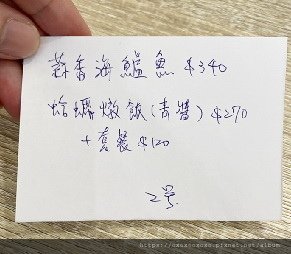 蒜香海鱸魚 $340
蛤蠣燉飯(青醬) $270
+套餐 $120
2号
https://oxoxoxoxo.pixnet.net/album